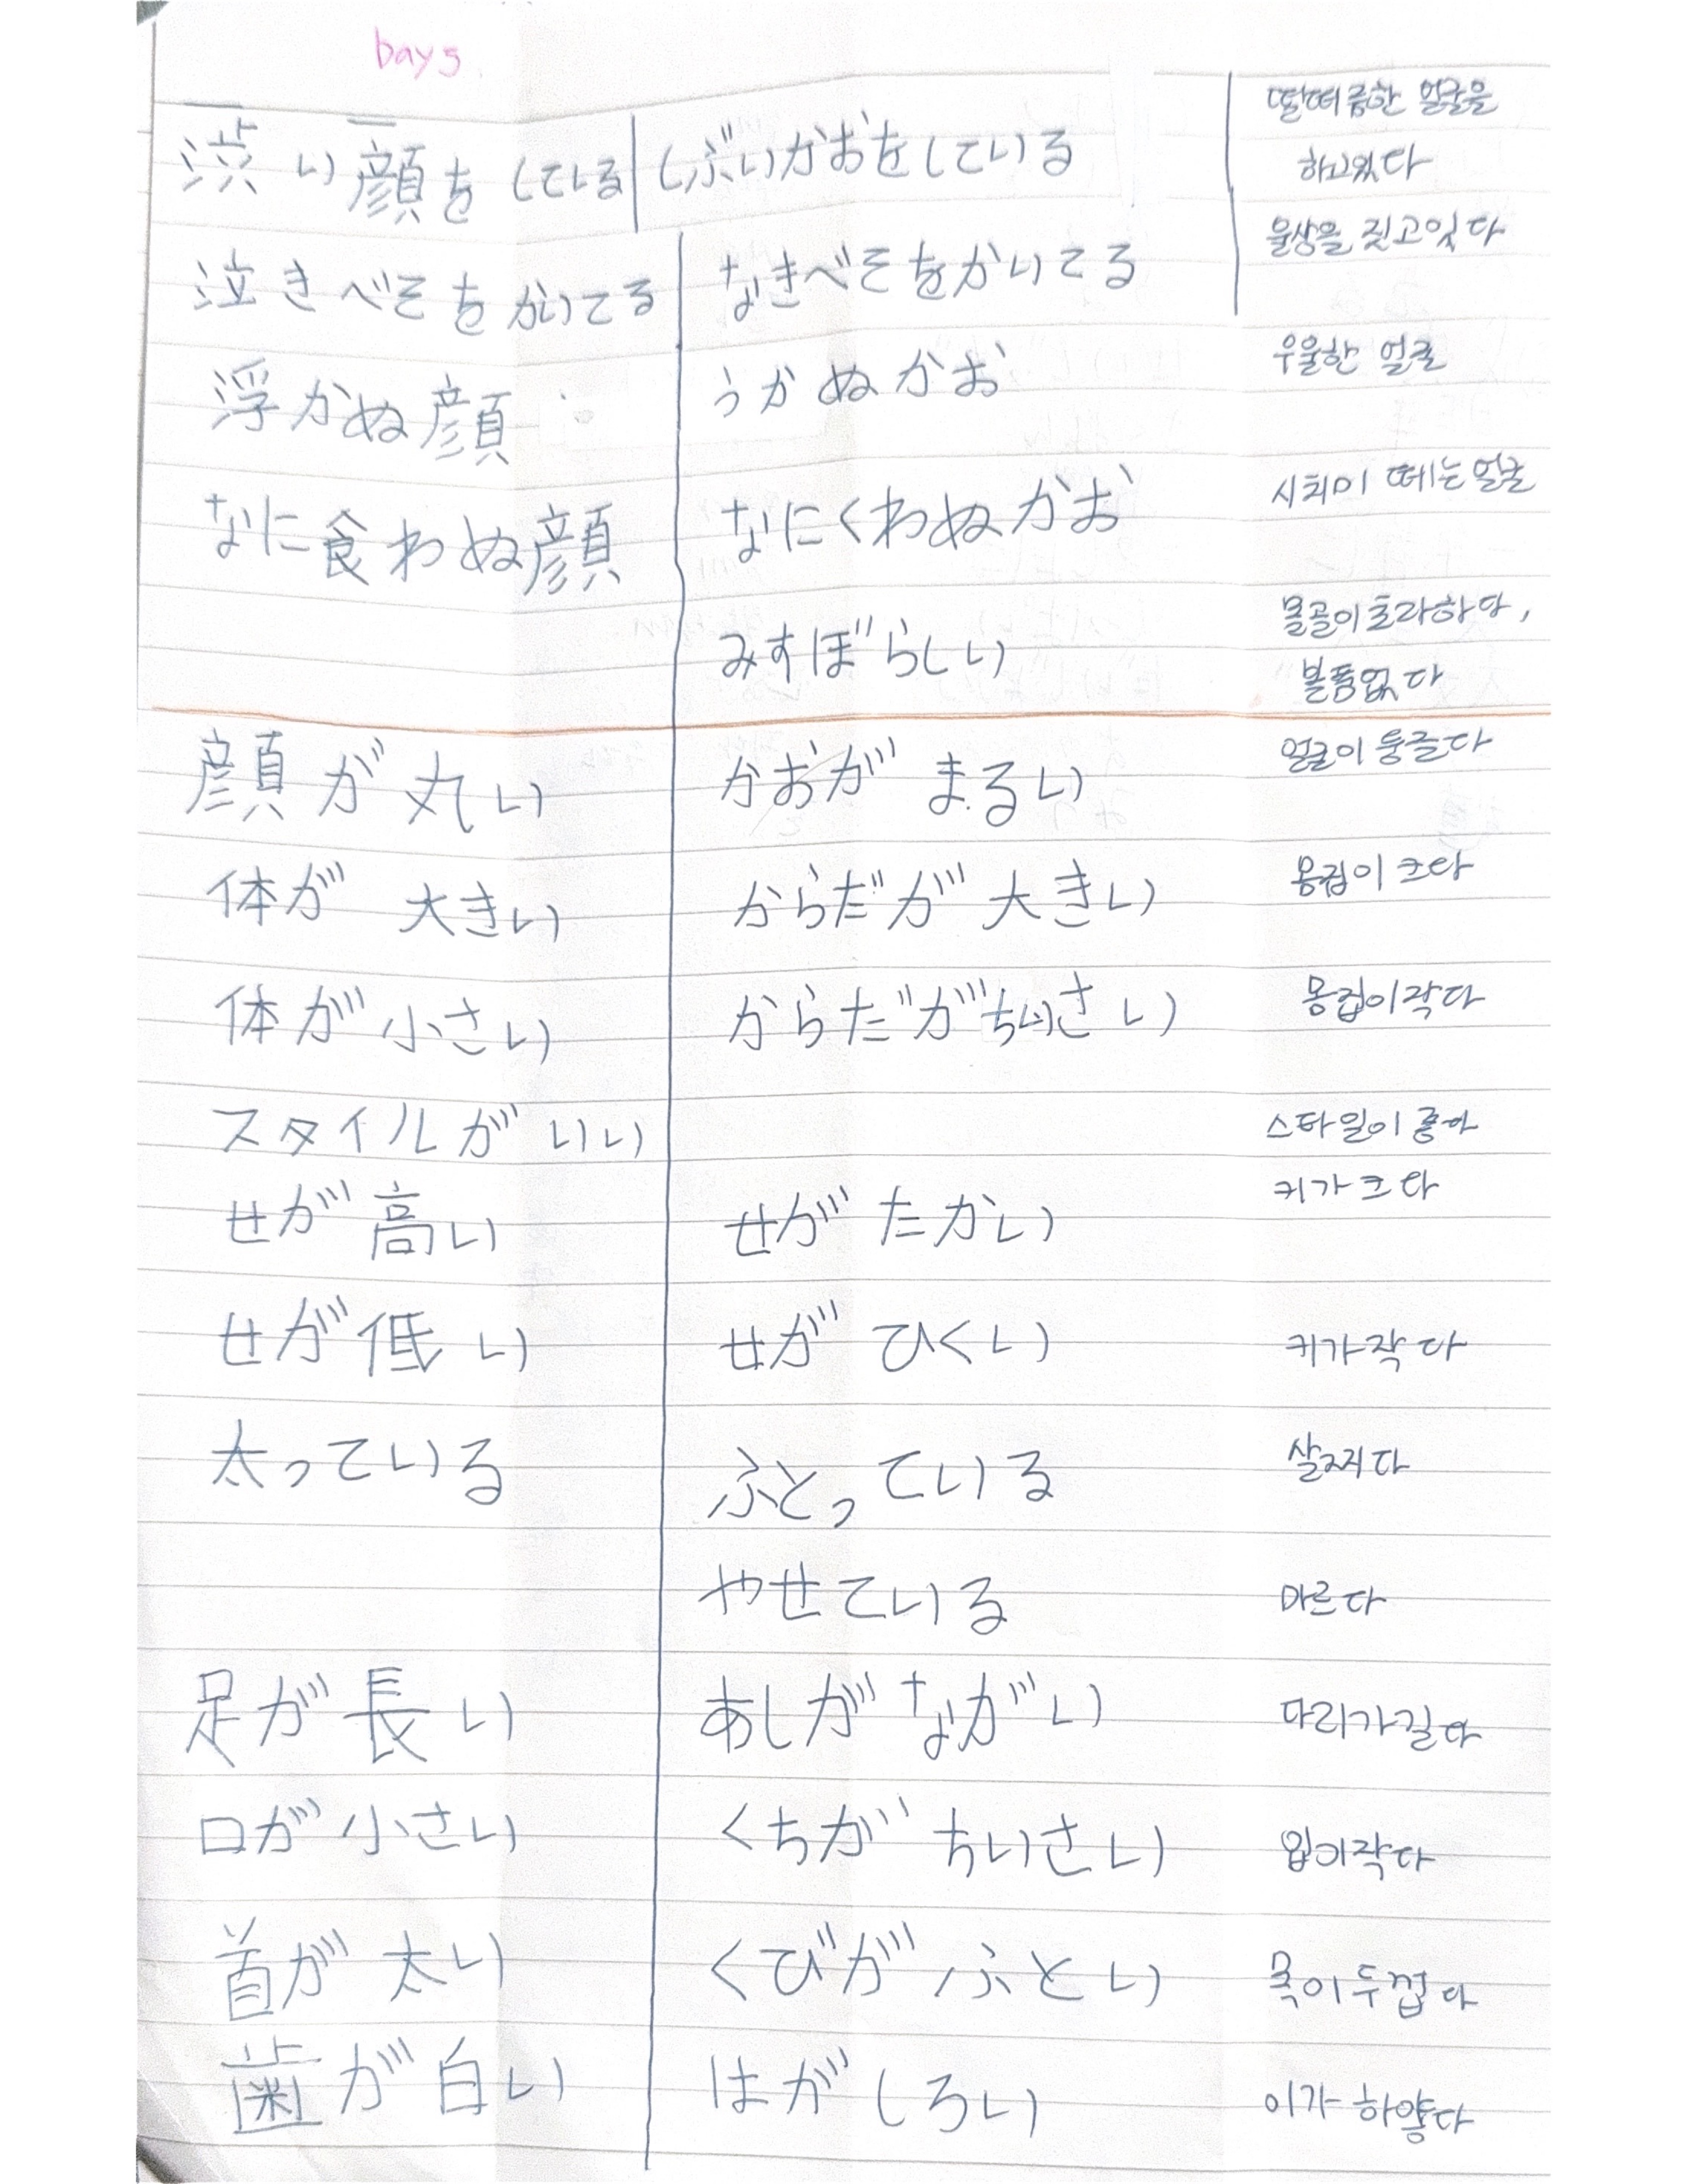 Day 5
渋い顔をしている しぶいかおをしている 떨떠름한 얼굴을
하고있다
泣きべそをかいてる なきべそをかいてる 울상을 짓고있다
浮かぬ顔 うかぬかお 우울한 얼굴
なに食わぬ顔 なにくわぬかお 시치미 떼는 얼굴
みすぼらしい 몰골이 초라하다,
볼품없다
顔が丸い かおがまるい 얼굴이 둥글다
体が大きい からだが大きい 몸집이 크다
体が小さい からだがちいさい 몸집이 작다
スタイルがいい 스타일이 좋아
せが高い せがたかい 키가 크다
せが低い せがひくい 키가 작다
太っている ふとっている 살찌다
やせている 마르다
足が長い あしがながい 다리가 길다
口が小さい くちがちいさい 입이 작다
首が太い くびがふとい 목이 두껍다
歯が白い はがしろい 이가 하얗다